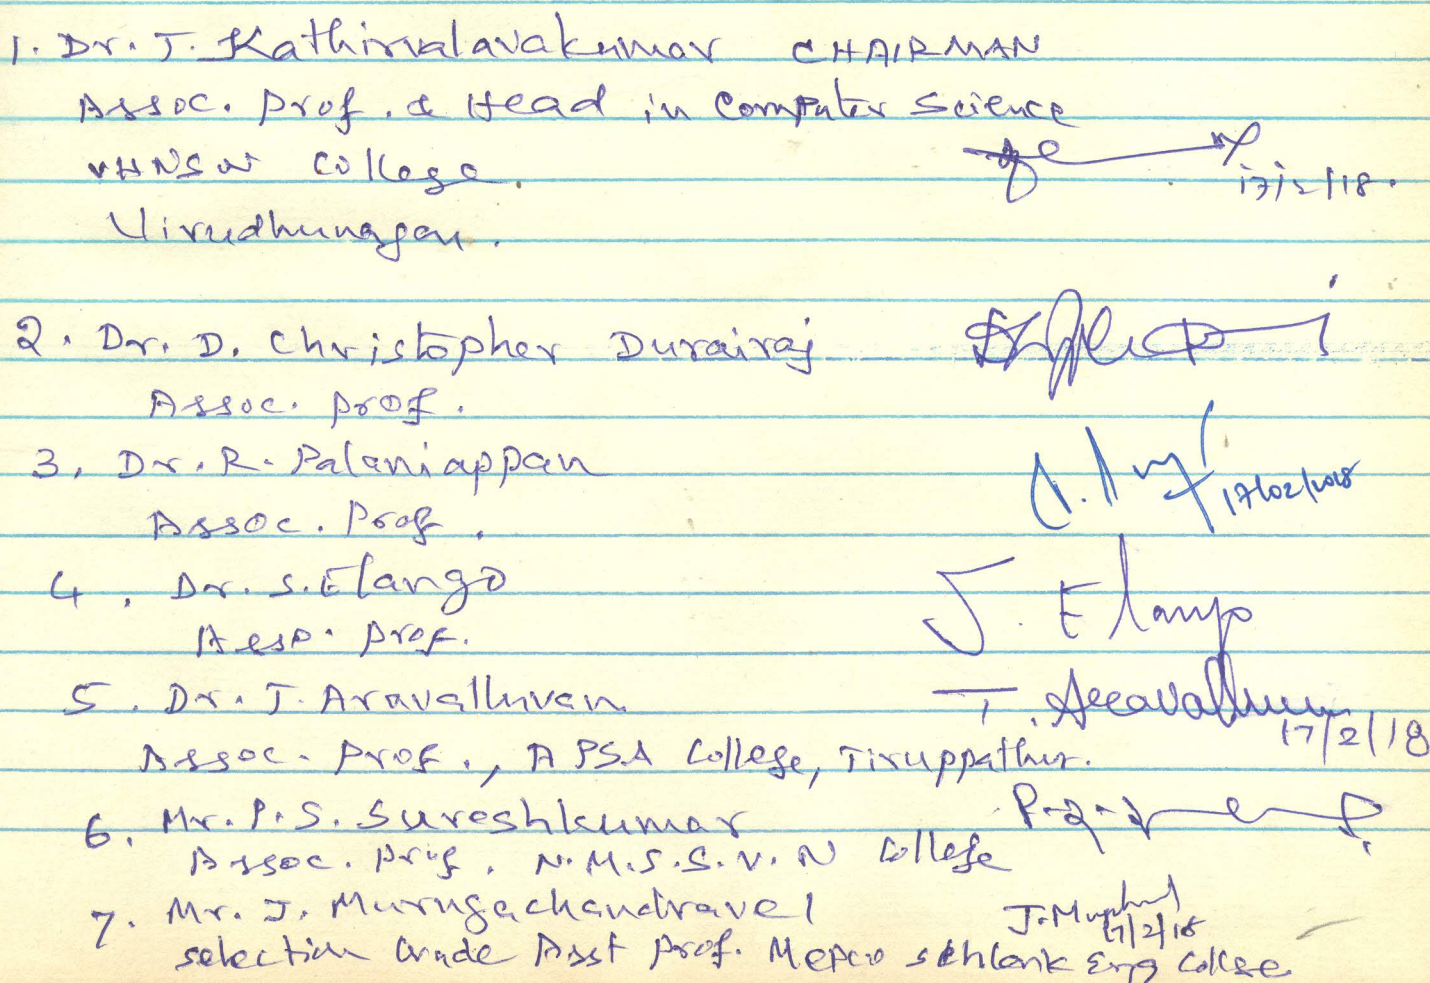 1. Dr. T. Kathirvalavakumar CHAIRMAN
Assoc. Prof. & Head in Computer Science
VHNSN College.
17/2/18.
Virudhunagar.
2. Dr. D. Christopher Durairaj
Assoc. Prof.
3. Dr. R. Palaniappan
17/02/2018
Assoc. Prof.
4. Dr. S. Elango S. Elango
Prof.
5. Dr. T. Aravalluvan T. Aravalluvan
17/2/18
Assoc. Prof., APSA College, Tiruppathur.
6. Mr. P. S. Sureshkumar
Assoc. Prof. N.M.S.S.V.N College
7. Mr. J. Murugachandravel
17/2/18
Selection Grade Asst Prof. Mepco Schlenk Eng College